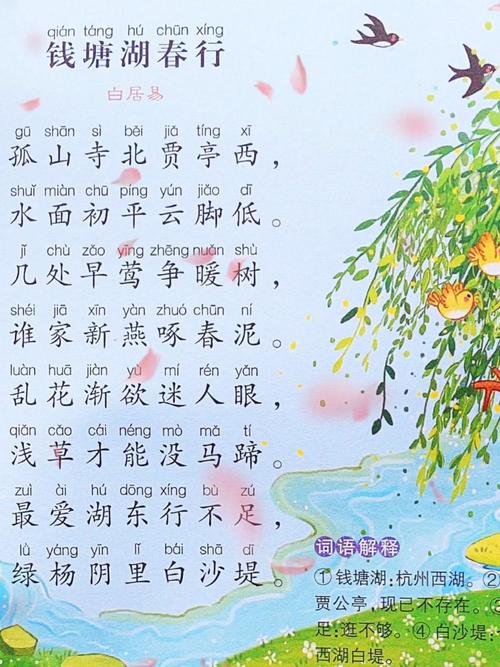 qián táng hú chūn xíng
钱塘湖春行
白居易
gū shān sì běi jiǎ tíng xī
孤山寺北贾亭西，
shuǐ miàn chū píng yún jiǎo dī
水面初平云脚低。
jǐ chù zǎo yīng zhēng nuǎn shù
几处早莺争暖树，
shéi jiā xīn yàn zhuó chūn ní
谁家新燕啄春泥。
luàn huā jiàn yù mí rén yǎn
乱花渐欲迷人眼，
qiǎn cǎo cái néng mò mǎ tí
浅草才能没马蹄。
zuì ài hú dōng xíng bù zú
最爱湖东行不足，
lǜ yáng yīn lǐ bái shā dī
绿杨阴里白沙堤。
词语解释
①钱塘湖:杭州西湖。
贾公亭,现已不存在。
足:逛不够。④白沙堤:
西湖白堤。